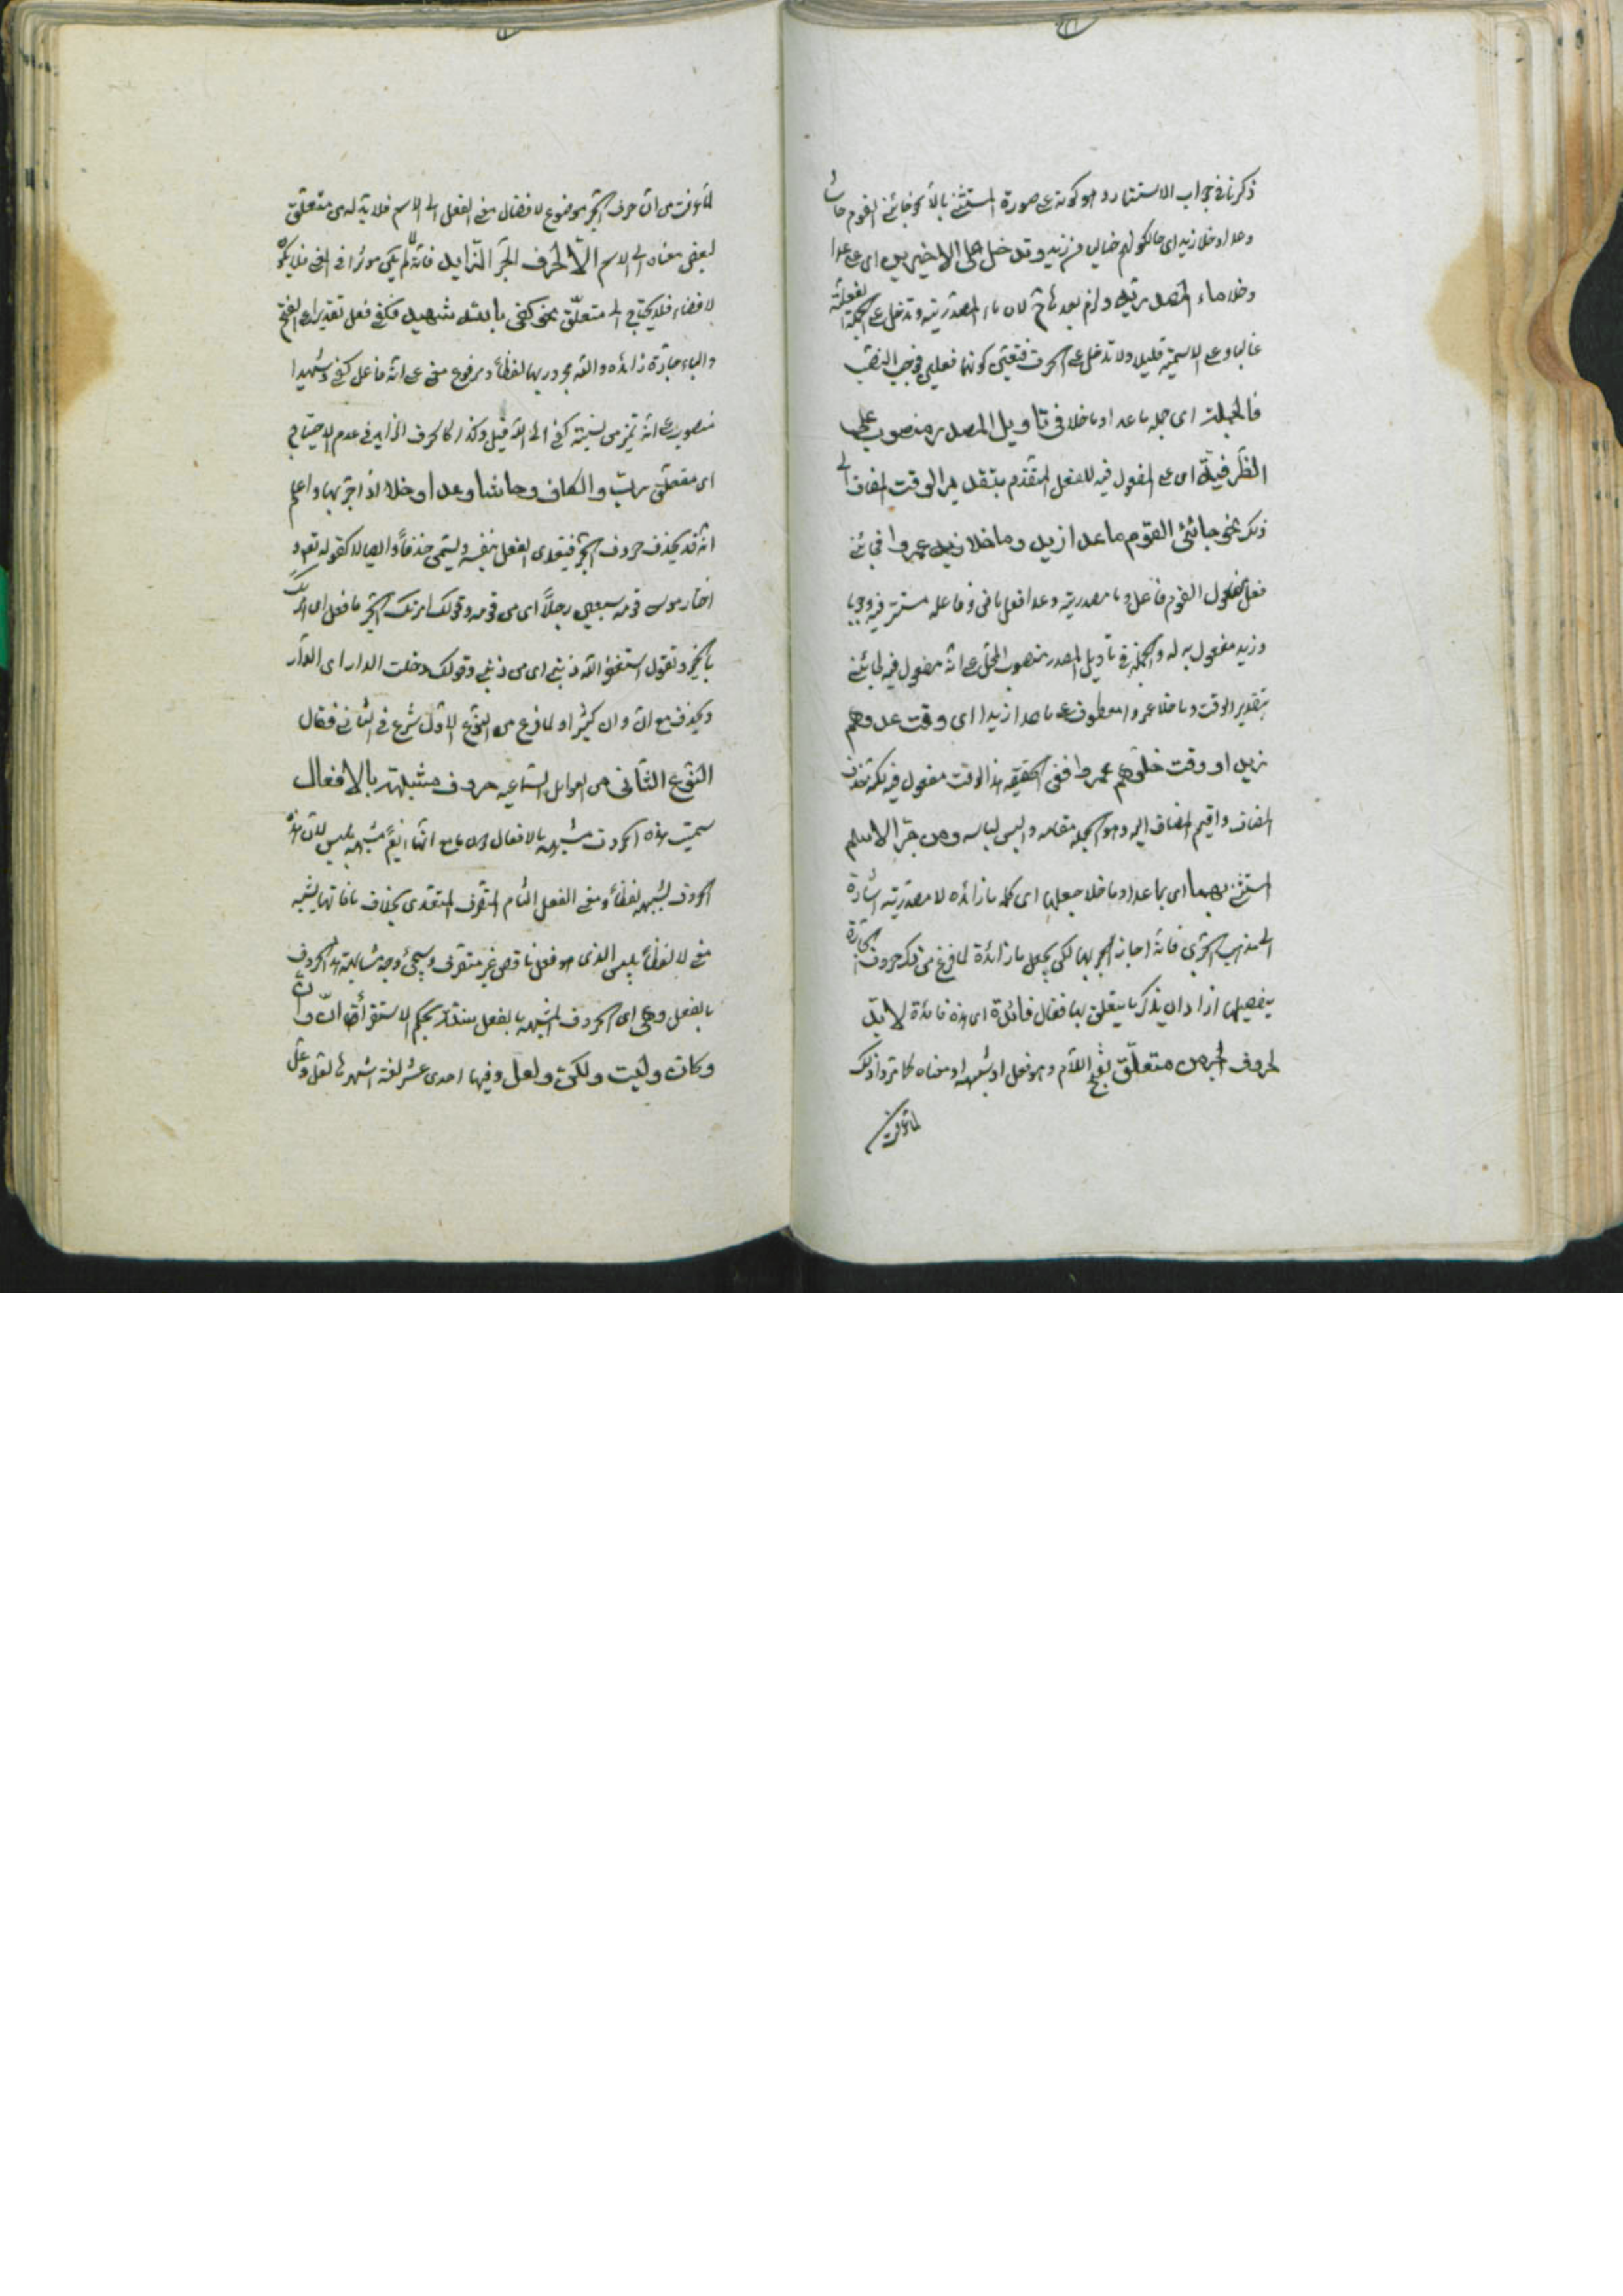 ذكرنا في جواب الاستتار وهو كونه على صورة المستثنى بالا نحو جائني القوم حاشا
وعدا وخلا زيد اى حالكونهم خاليين من زيد وتدخل على الاخيرين اى على عدا
وخلا ماء المصدرية ولزم بعد لان ماء المصدرية وتدخل على الجملة الفعلية
غالبا وعلى الاسمية قليلا ولا تدخل على الحرف فتعين كونهما فعلين فوجب النصب
فالجملة اى جملة ما عدا وما خلا في تاويل المصدر منصوب على
الظرفية اى على المفعول فيه للفعل المتقدم بتقدير الوقت المضاف الى
ذلك نحو جائني القوم ما عدا زيدا وما خلا زيد عمروا فجائني
فعل ومفعول القوم فاعل وما مصدرية وعدا فعل ماض وفاعله مستتر فيه وجوبا
وزيد مفعول به له والجملة في تاويل المصدر منصوب المحل على انه مفعول فيه لجائني
بتقدير الوقت وما خلا عمروا معطوف على ما عدا زيدا اى وقت عدوهم
زيد او وقت خلوهم عمروا ففى الحقيقة هذا الوقت مفعول فيه لكنه حذف
المضاف واقيم المضاف اليه وهو الجملة مقامه والبس لباسه ومن جر الاسم
المستثنى بهما اى بما عدا وما خلا جعلها اى كلمة ما زائده لا مصدرية اشارة
الى مذهب الجرمى فانه اجاز الجر بهما لكن بجعل ما زائدة لما فرغ من ذكر حروف الجارة
بتفصيلها اراد ان يذكر ما يتعلق بها فقال فائدة اى هذه فائدة لا بد
لحروف الجر من متعلق بفتح اللام وهو فعل او شبهه او معناه كما مر وذلك
لما عرفت
لما عرفت من ان حرف الجر موضوع لافضاء معنى الفعل الى الاسم فلا بد له من متعلق
ليفضى معناه الى الاسم الا الحرف الجر الزايد فانه لما لم يكن موثرا في المعنى فلا يكون
لافضاء فلا يحتاج الى متعلق نحو كفى بالله شهيدا فكفى فعل تقديرا على الفتح
والباء جارة زائده والله مجرور بها لفظا ومرفوع معنى على انه فاعل كفى وشهيدا
منصوب على انه تميز من نسبة كفى الى الله قيل وكذا كالحرف الزايد في عدم الاحتياج
اى متعلق رب والكاف وحاشا وعدا وخلا اذا جر بها واعلم
انه قد يحذف حروف الجر فيتعدى الفعل بنفسه ويسمى حذفا وايصالا كقوله تعه و
اختار موسى قومه سبعين رجلا اى من قومه وقولك امرتك الخير فافعل اى امرتك
بالخير وتقول استغفر الله ذنبى اى من ذنبى وقولك دخلت الدار اى الى الدار
ويحذف مع ان وان كثيرا ولما فرغ من النوع الاول شرع في الثاني فقال
النوع الثاني من العوامل السماعيه حروف مشبهة بالافعال
سميت هذه الحروف مشبهة بالافعال مع انها ايضا مشبهة بليس لان هذه
الحروف يشبه لفظا ومعنى الفعل التام المتصرف المتعدى بخلاف ما فانها يشبه
معنى لا لفظا بليس الذى هو فعل ناقص غير متصرف وسيجئ وجه مشابهة هذه الحروف
بالفعل وهى اى الحروف المشبهة بالفعل ستة بحكم الاستقراء ان وان
وكان وليت ولكن ولعل وفيها احدى عشر لغة اشهرها لعل وعل